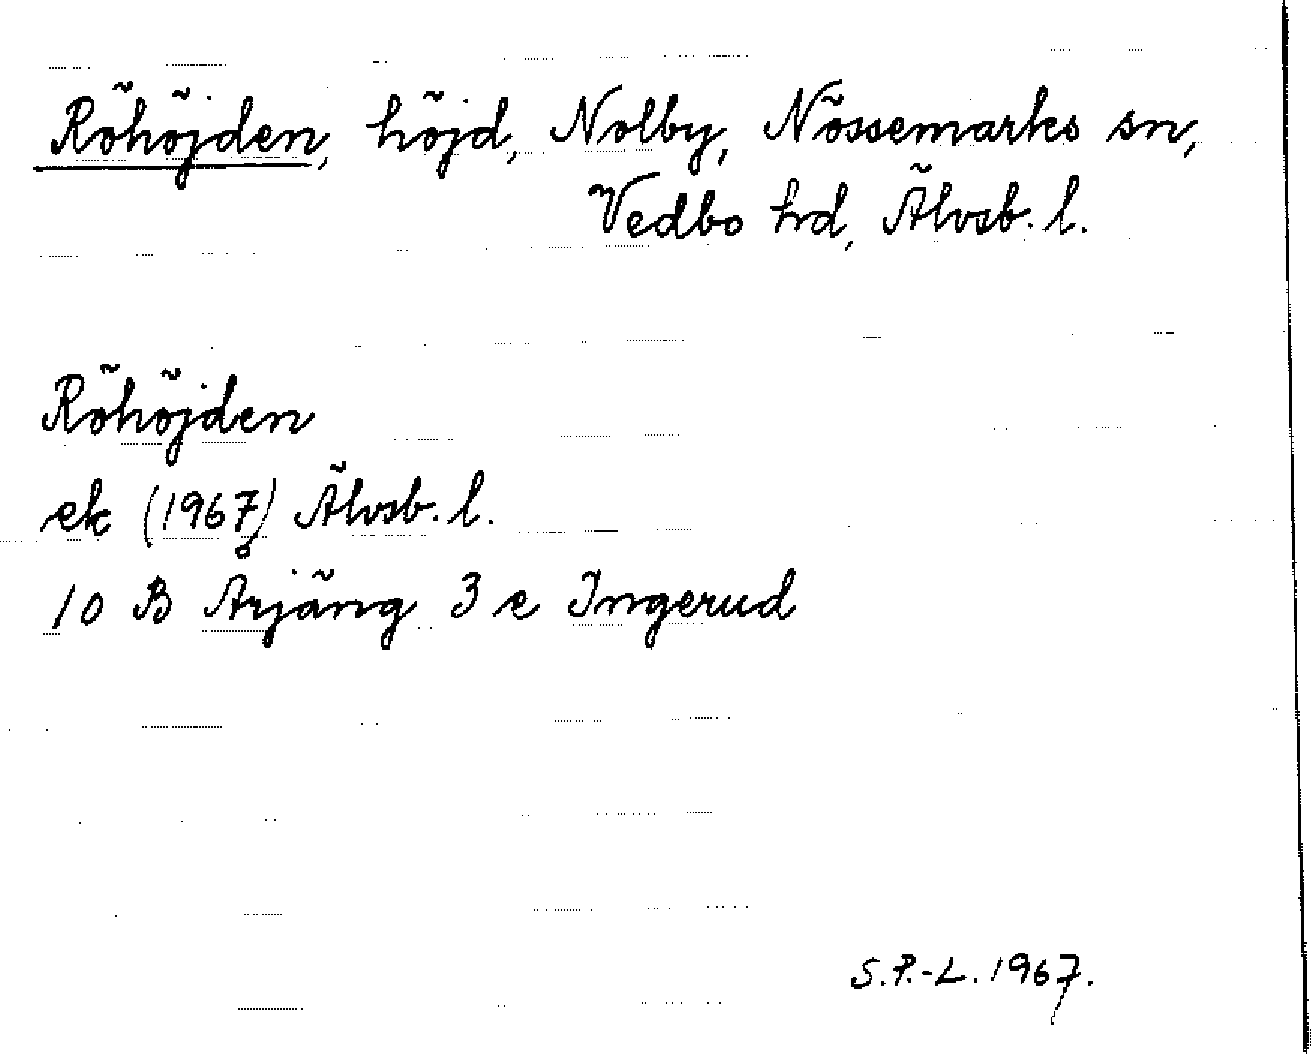 Röhöjden, höjd, Nolby, Nössemarks sn,
Vedbo hd, Älvsb. l.
Röhöjden
ek (1967) Älvsb. l.
10 B Årjäng 3 e Ingerud
S.P.-L. 1967.